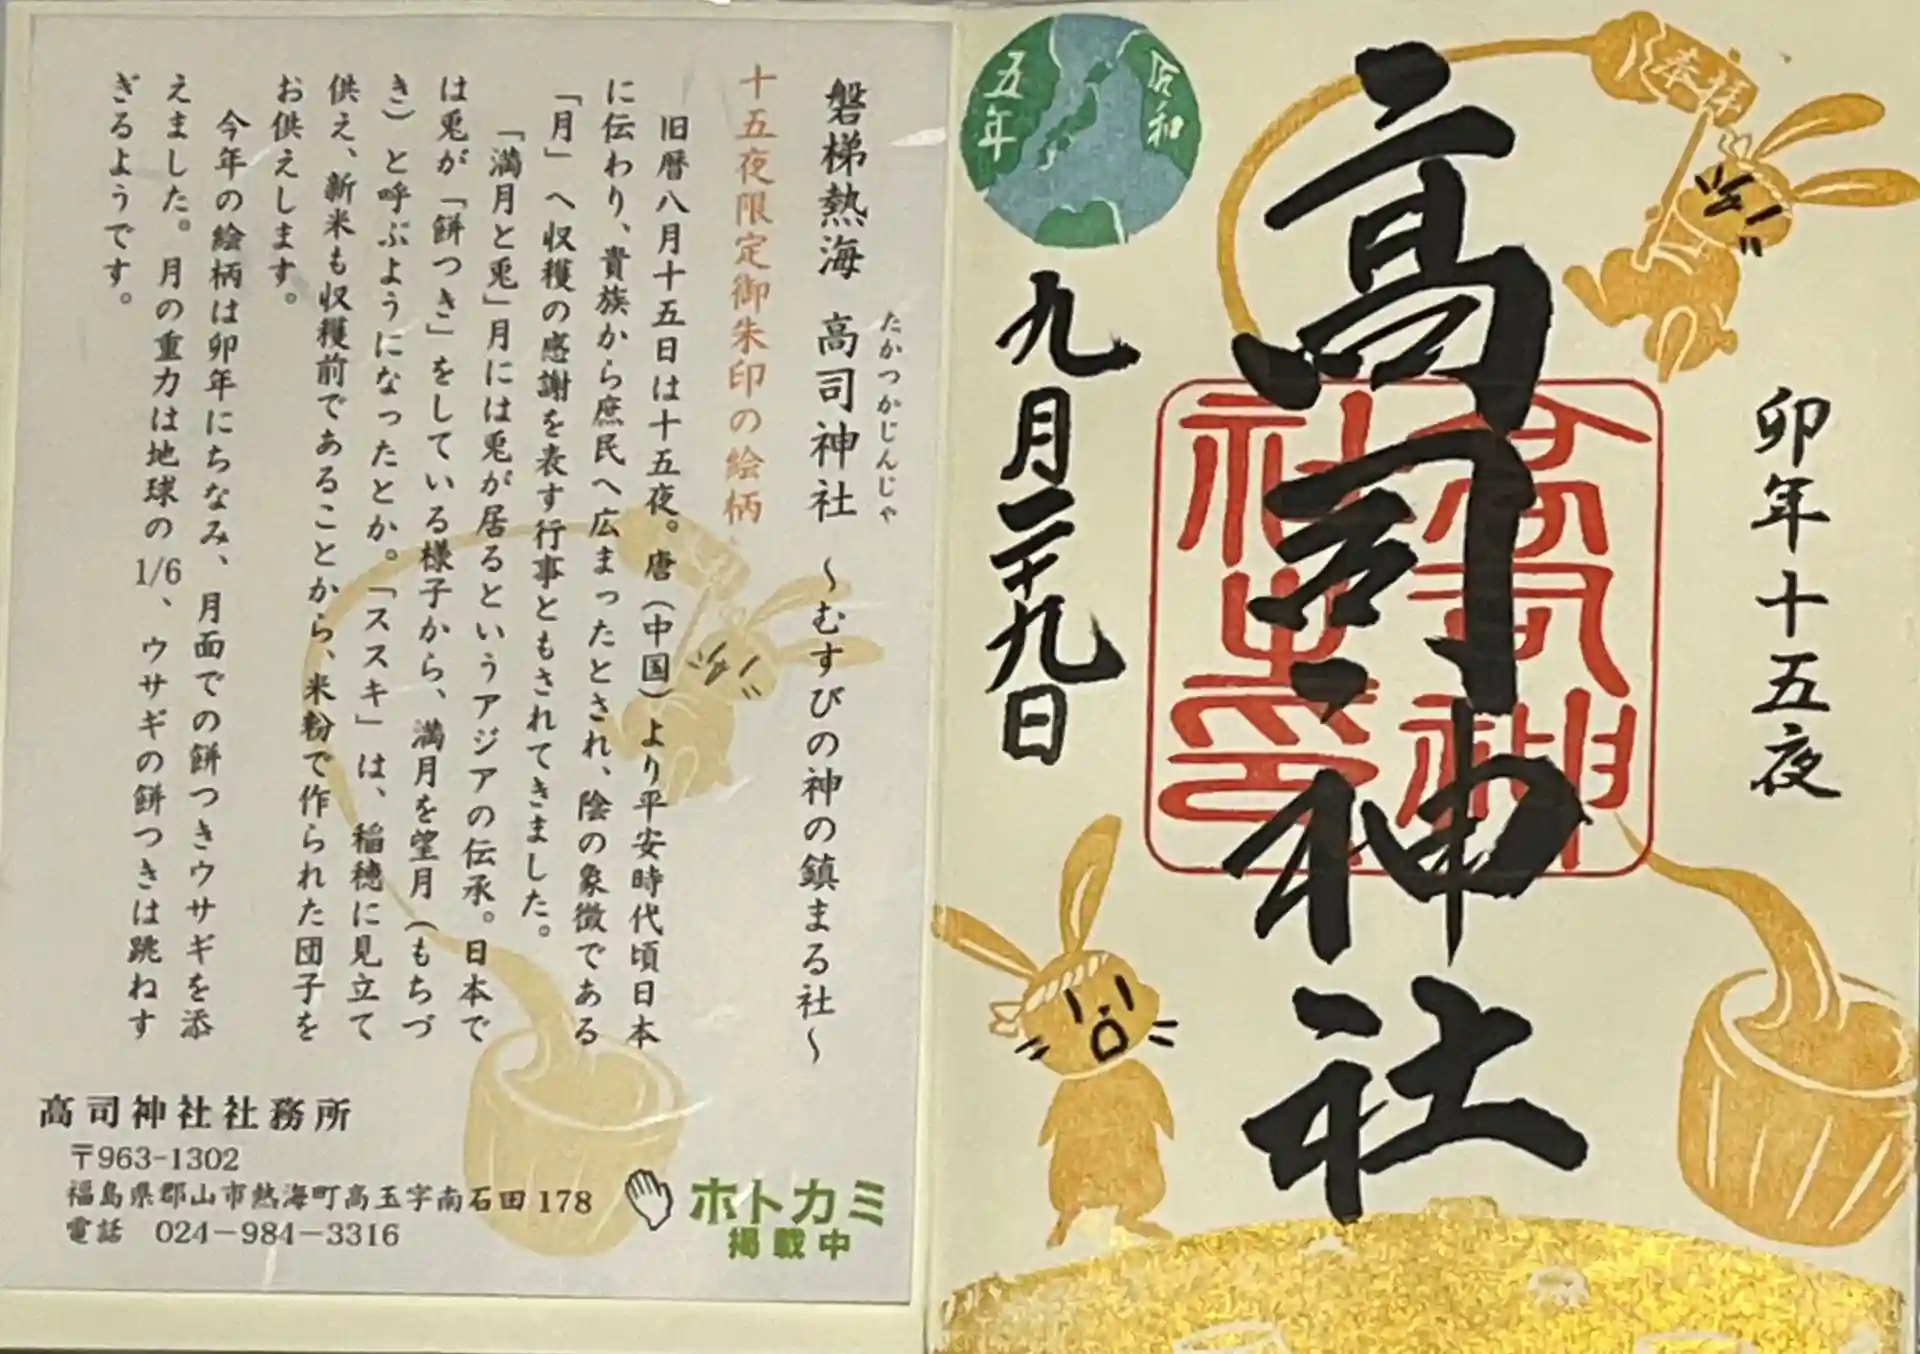 奉拝
卯年十五夜
高司神社
高司神
社之印
令和
五年
九月二十九日
磐梯熱海 高司神社 ～むすびの神の鎮まる社～
たかつかじんじゃ
十五夜限定御朱印の絵柄
旧暦八月十五日は十五夜。唐（中国）より平安時代頃日本
に伝わり、貴族から庶民へ広まったとされ、陰の象徴である
「月」へ収穫の感謝を表す行事ともされてきました。
「満月と兎」月には兎が居るというアジアの伝承。日本で
は兎が「餅つき」をしている様子から、満月を望月（もちづ
き）と呼ぶようになったとか。「ススキ」は、稲穂に見立て
供え、新米も収穫前であることから、米粉で作られた団子を
お供えします。
今年の絵柄は卯年にちなみ、月面での餅つきウサギを添
えました。月の重力は地球の1/6、ウサギの餅つきは跳ねす
ぎるようです。
高司神社社務所
〒963-1302
福島県郡山市熱海町高玉字南石田178
電話 024－984－3316
ホトカミ
掲載中